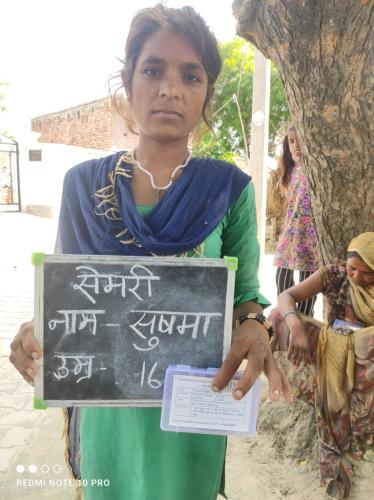 सेमरी
नाम - सुषमा
उम्र - 16
REDMI NOTE 10 PRO